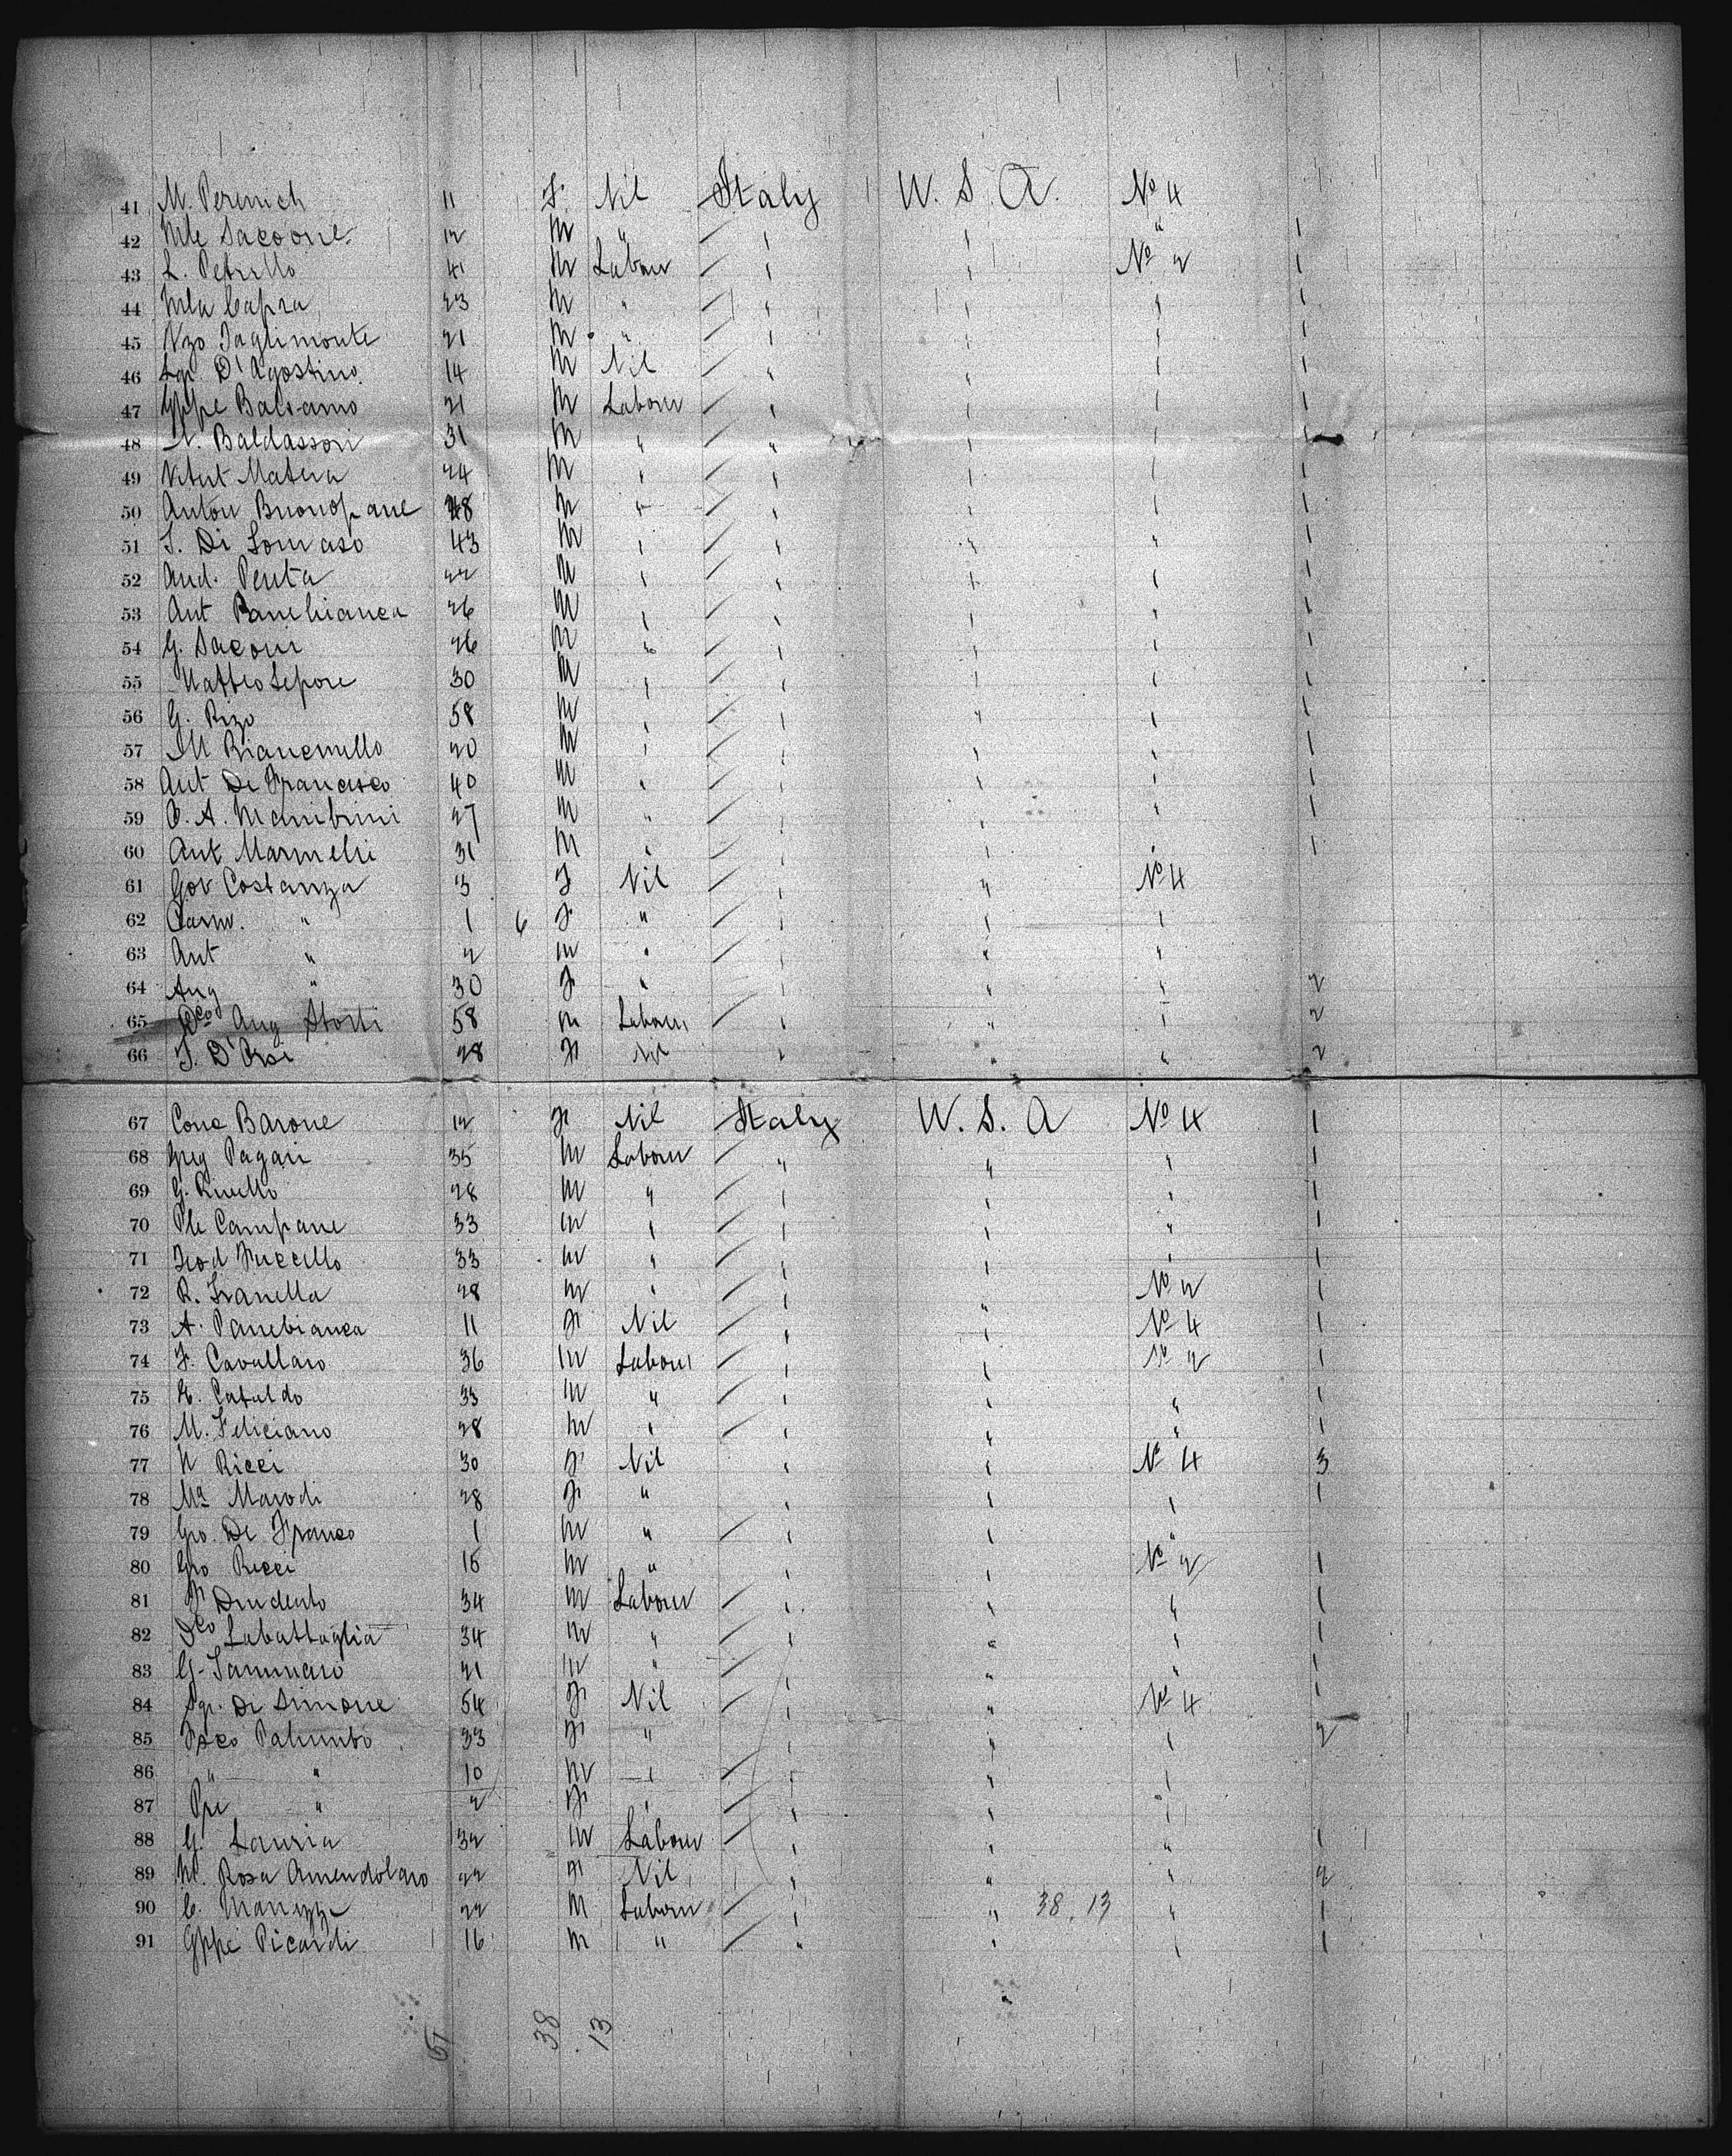 41 M. Perenich 11 F. Nil Italy U. S. A. No 4
42 Mle Sacoone 12 M " / " " " 1
43 L. Petrillo 41 M Labour / " " No 2 1
44 Mla Capra 23 M " / " " " 1
45 Nzo Taglimonte 21 M " / " " " 1
46 D'Agostino 14 M Nil / " " " 1
47 Gppe Balsamo 21 M Labour / " " " 1
48 N. Baldassori 31 M " / " " "
49 Matera 24 M " / " " " 1
50 Anton Buonopane M " / " " " 1
51 Di Tomaso 43 M " / " " " 1
52 And. Penta 22 M " / " " " 1
53 Ant Panebianca 26 M " / " " " 1
54 G. Saconi 26 M " / " " " 1
55 Matteo Lepore 30 M " / " " " 1
56 G. Rizo 58 M " / " " " 1
57 M 20 M " / " " " 1
58 Ant De Francisco 40 M " / " " " 1
59 A. Mambrini 27 M " / " " " 1
60 Ant 31 M " / " " " 1
61 Gov Costanza 3 F Nil / " " No 4
62 Carm. " 1 6 F " / " " "
63 Ant " 2 M " / " " "
64 Ang " 30 F " " " " 2
65 Dco Ang Storti 58 M Labour / " " " 2
66 D'Orsi 28 F Nil " " " 2
67 Conc Barone 12 F Nil Italy U. S. A No 4 1
68 Greg Pagari 35 M Labour / " " " 1
69 G. 28 M " / " " " 1
70 Ple Campane 33 M " / " " " 1
71 Teod Fuccillo 33 M " / " " " 1
72 R. 28 M " / " " No 2 1
73 A. Panebianca 11 F Nil / " " No 4 1
74 F. Cavallaro 36 M Labour / " " No 2 1
75 Cataldo 33 M " / " " " 1
76 M. Feliciano 28 M " / " " " 1
77 N Ricci 30 F Nil " " No 4 3
78 Ma Marodi 28 F " " " " 1
79 Gio. De Franco 1 M " / " " "
80 Gio Ricci 15 M " " " No 2 1
81 34 M Labour / " " " 1
82 Dco Labattaglia 34 M " / " " " 1
83 G. Tammaro 21 M " / " " " 1
84 De Simone 54 F Nil / " " No 4 1
85 Palumbo 33 F " " " " 2
86 " " 10 M " / " " "
87 " 2 F " / " " "
88 G. Lauria 32 M Labour / " " " 1
89 M. Rosa Amendolaro 22 F Nil " " " 2
90 C. 22 M Labour / " " 38.13 " 1
91 Gppe Picardi 16 M " / " " " 1
51 38 13